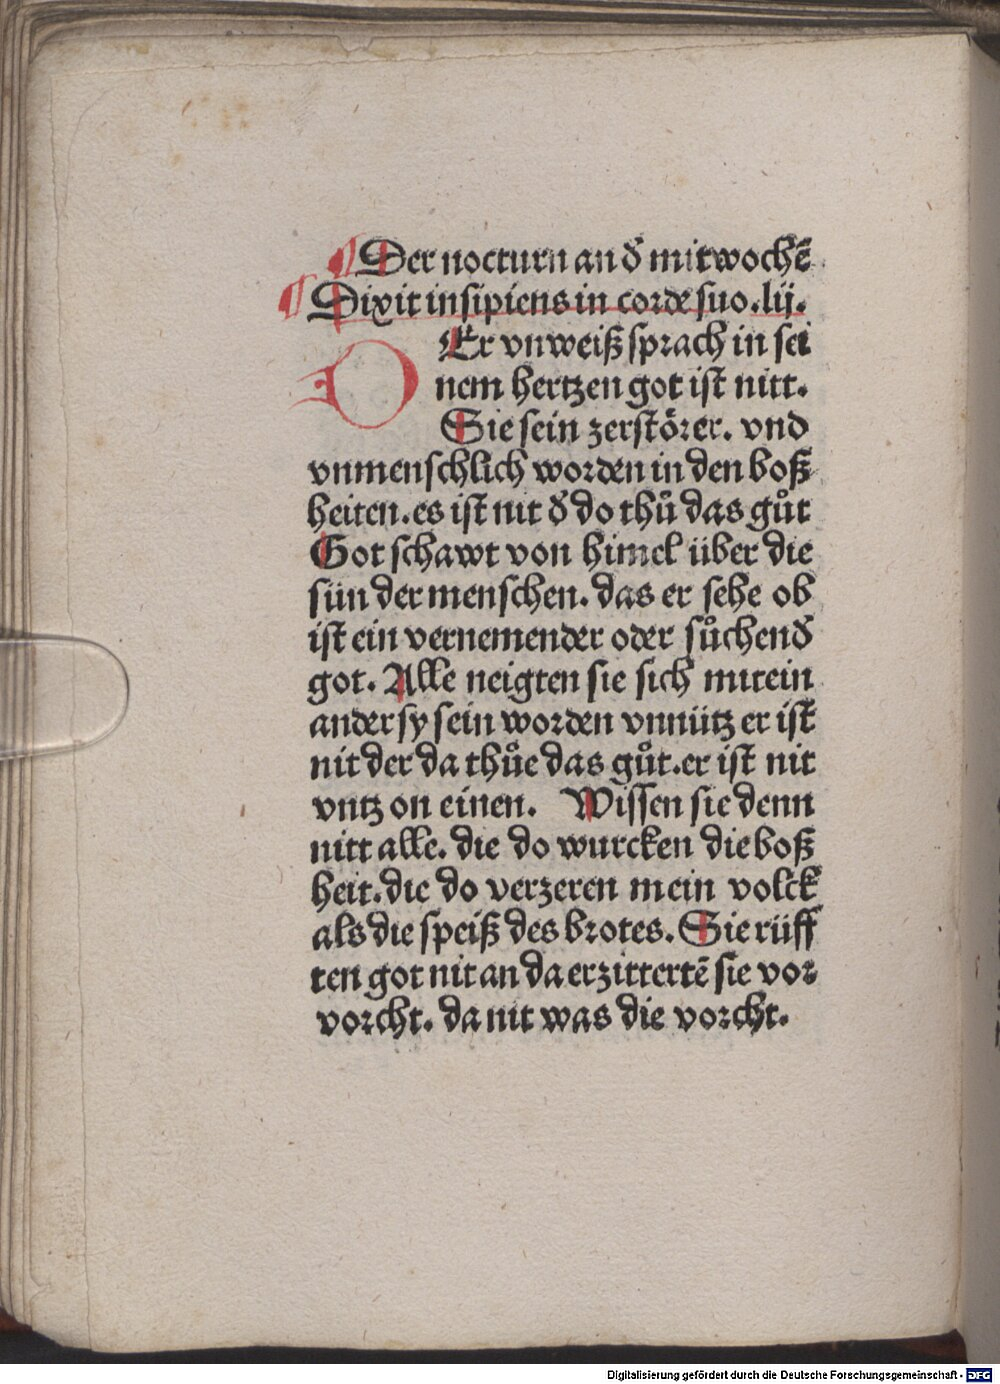 ¶ Der nocturn an d̕ mitwochē
¶ Dixit insipiens in corde suo. lij.
DEr vnweiß sprach in sei
nem hertzen got ist nitt.
Sie sein zerstörer. vnd
vnmenschlich worden in den boß
heiten. es ist nit d̕ do thů das gůt
Got schawt von himel über die
sün der menschen. das er sehe ob
ist ein vernemender oder sůchend̕
got. Alle neigten sie sich mitein
ander sy sein worden vnnütz er ist
nit der da thůe das gůt. er ist nit
vntz on einen. Wissen sie denn
nitt alle. die do wurcken die boß
heit. die do verzeren mein volck
als die speiß des brotes. Sie rüff
ten got nit an da erzittertē sie vor
vorcht. da nit was die vorcht.
Digitalisierung gefördert durch die Deutsche Forschungsgemeinschaft - DFG